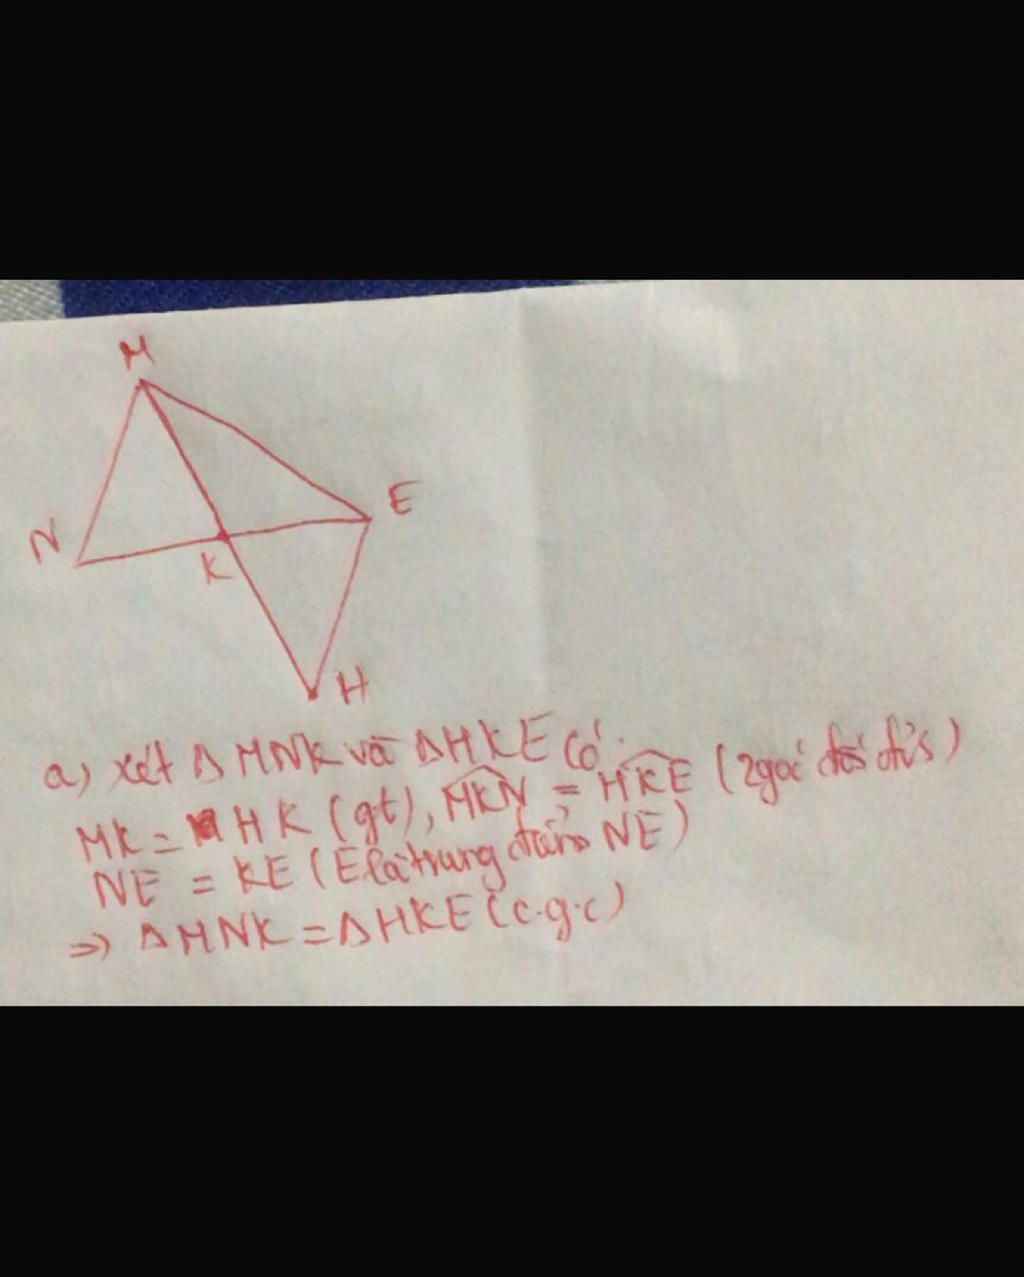 M
E
N
K
H
a) xét Δ MNK và Δ HKE có:
MK = HK (gt), MKN = HKE (2 góc đối đỉnh)
NE = KE (E là trung điểm NE)
=> Δ MNK = Δ HKE (c.g.c)